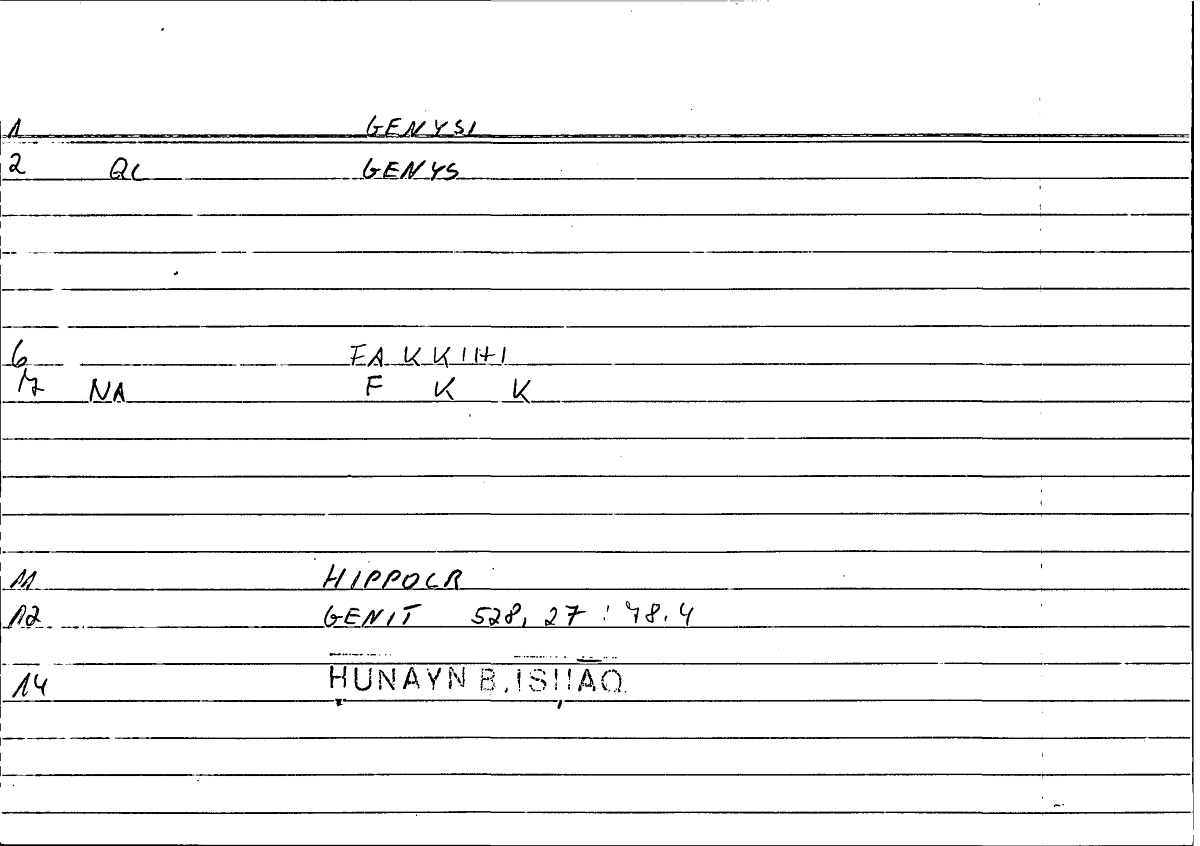 1 GENYSI
2 QC GENYS
6 FAKKIHI
7 NA F K K
11 HIPPOCR
12 GENIT 528, 27 : 48.4
14 ḤUNAYN B. ISḤĀQ